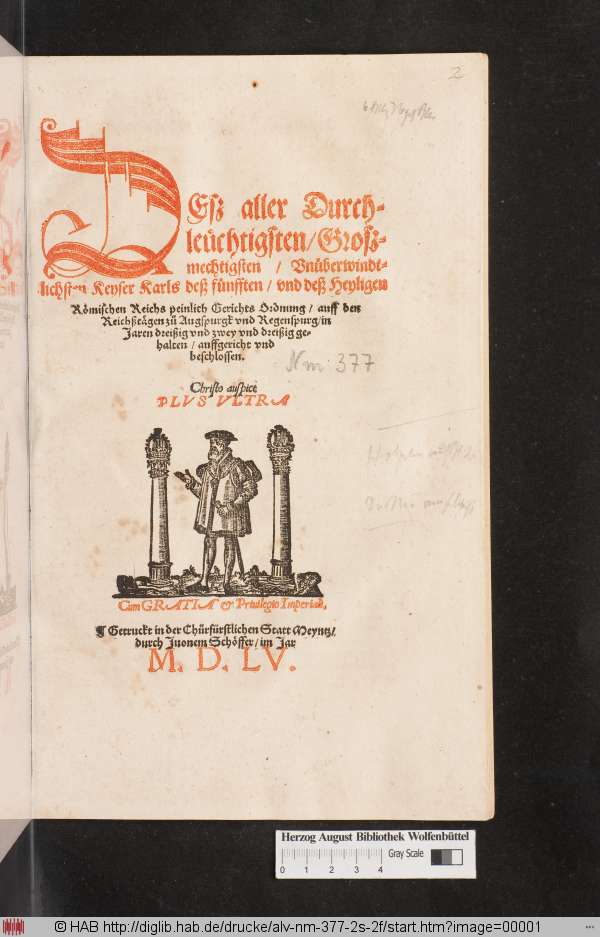 2
DEß aller Durch-
leüchtigsten/Groß-
mechtigsten / Vnüberwindt-
lichsten Keyser Karls deß fünfften / vnd deß Heyligen
Römischen Reichs peinlich Gerichts Ordnung / auff den
Reichßtägen zů Augspurgk vnd Regenspurg/in
Jaren dreißig vnd zwey vnd dreißig ge-
halten / auffgericht vnd
beschlossen.
Nm 377
Christo auspice
PLVS VLTRA
Cum GRATIA & Priuilegio Imperiali.
¶ Getruckt in der Chürfürstlichen Statt Meyntz/
durch Juonem Schöffer/im Jar
M. D. LV.
Herzog August Bibliothek Wolfenbüttel
0 1 2 3 4 Gray Scale
© HAB http://diglib.hab.de/drucke/alv-nm-377-2s-2f/start.htm?image=00001